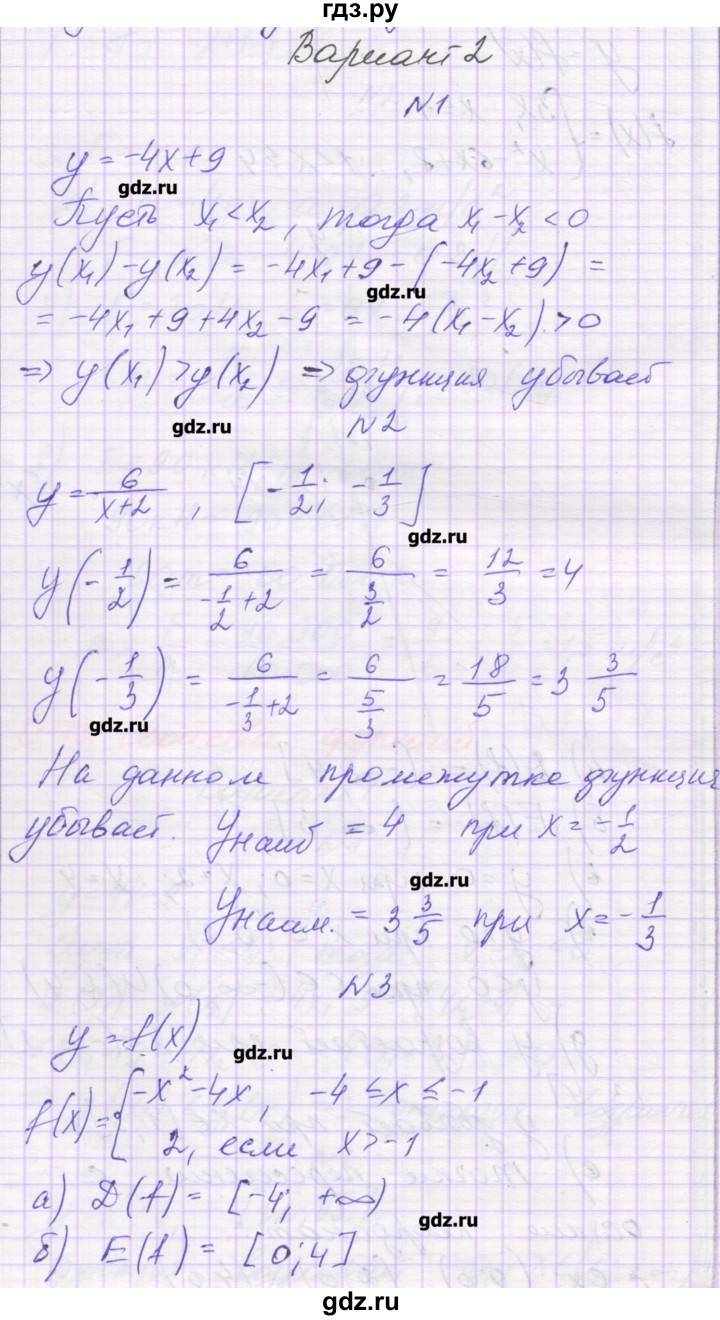 гдз.ру
Вариант 2
N1
y = -4x+9
gdz.ru
Пусть x₁ < x₂, тогда x₁ - x₂ < 0
y(x₁) - y(x₂) = -4x₁+9 - (-4x₂+9) =
gdz.ru
= -4x₁+9+4x₂-9 = -4(x₁-x₂) > 0
⇒ y(x₁) > y(x₂) ⇒ функция убывает
gdz.ru
N2
y = 6/(x+2), [-1/2; -1/3]
gdz.ru
y(-1/2) = 6/(-1/2+2) = 6/(3/2) = 12/3 = 4
y(-1/3) = 6/(-1/3+2) = 6/(5/3) = 18/5 = 3 3/5
gdz.ru
На данном промежутке функция
убывает. Yнаиб = 4 при x = -1/2
gdz.ru
Yнаим. = 3 3/5 при x = -1/3
N3
y = f(x)
gdz.ru
f(x) = { -x² - 4x, -4 ≤ x ≤ -1
2, если x > -1
а) D(f) = [-4; +∞)
gdz.ru
б) E(f) = [0; 4]
gdz.ru